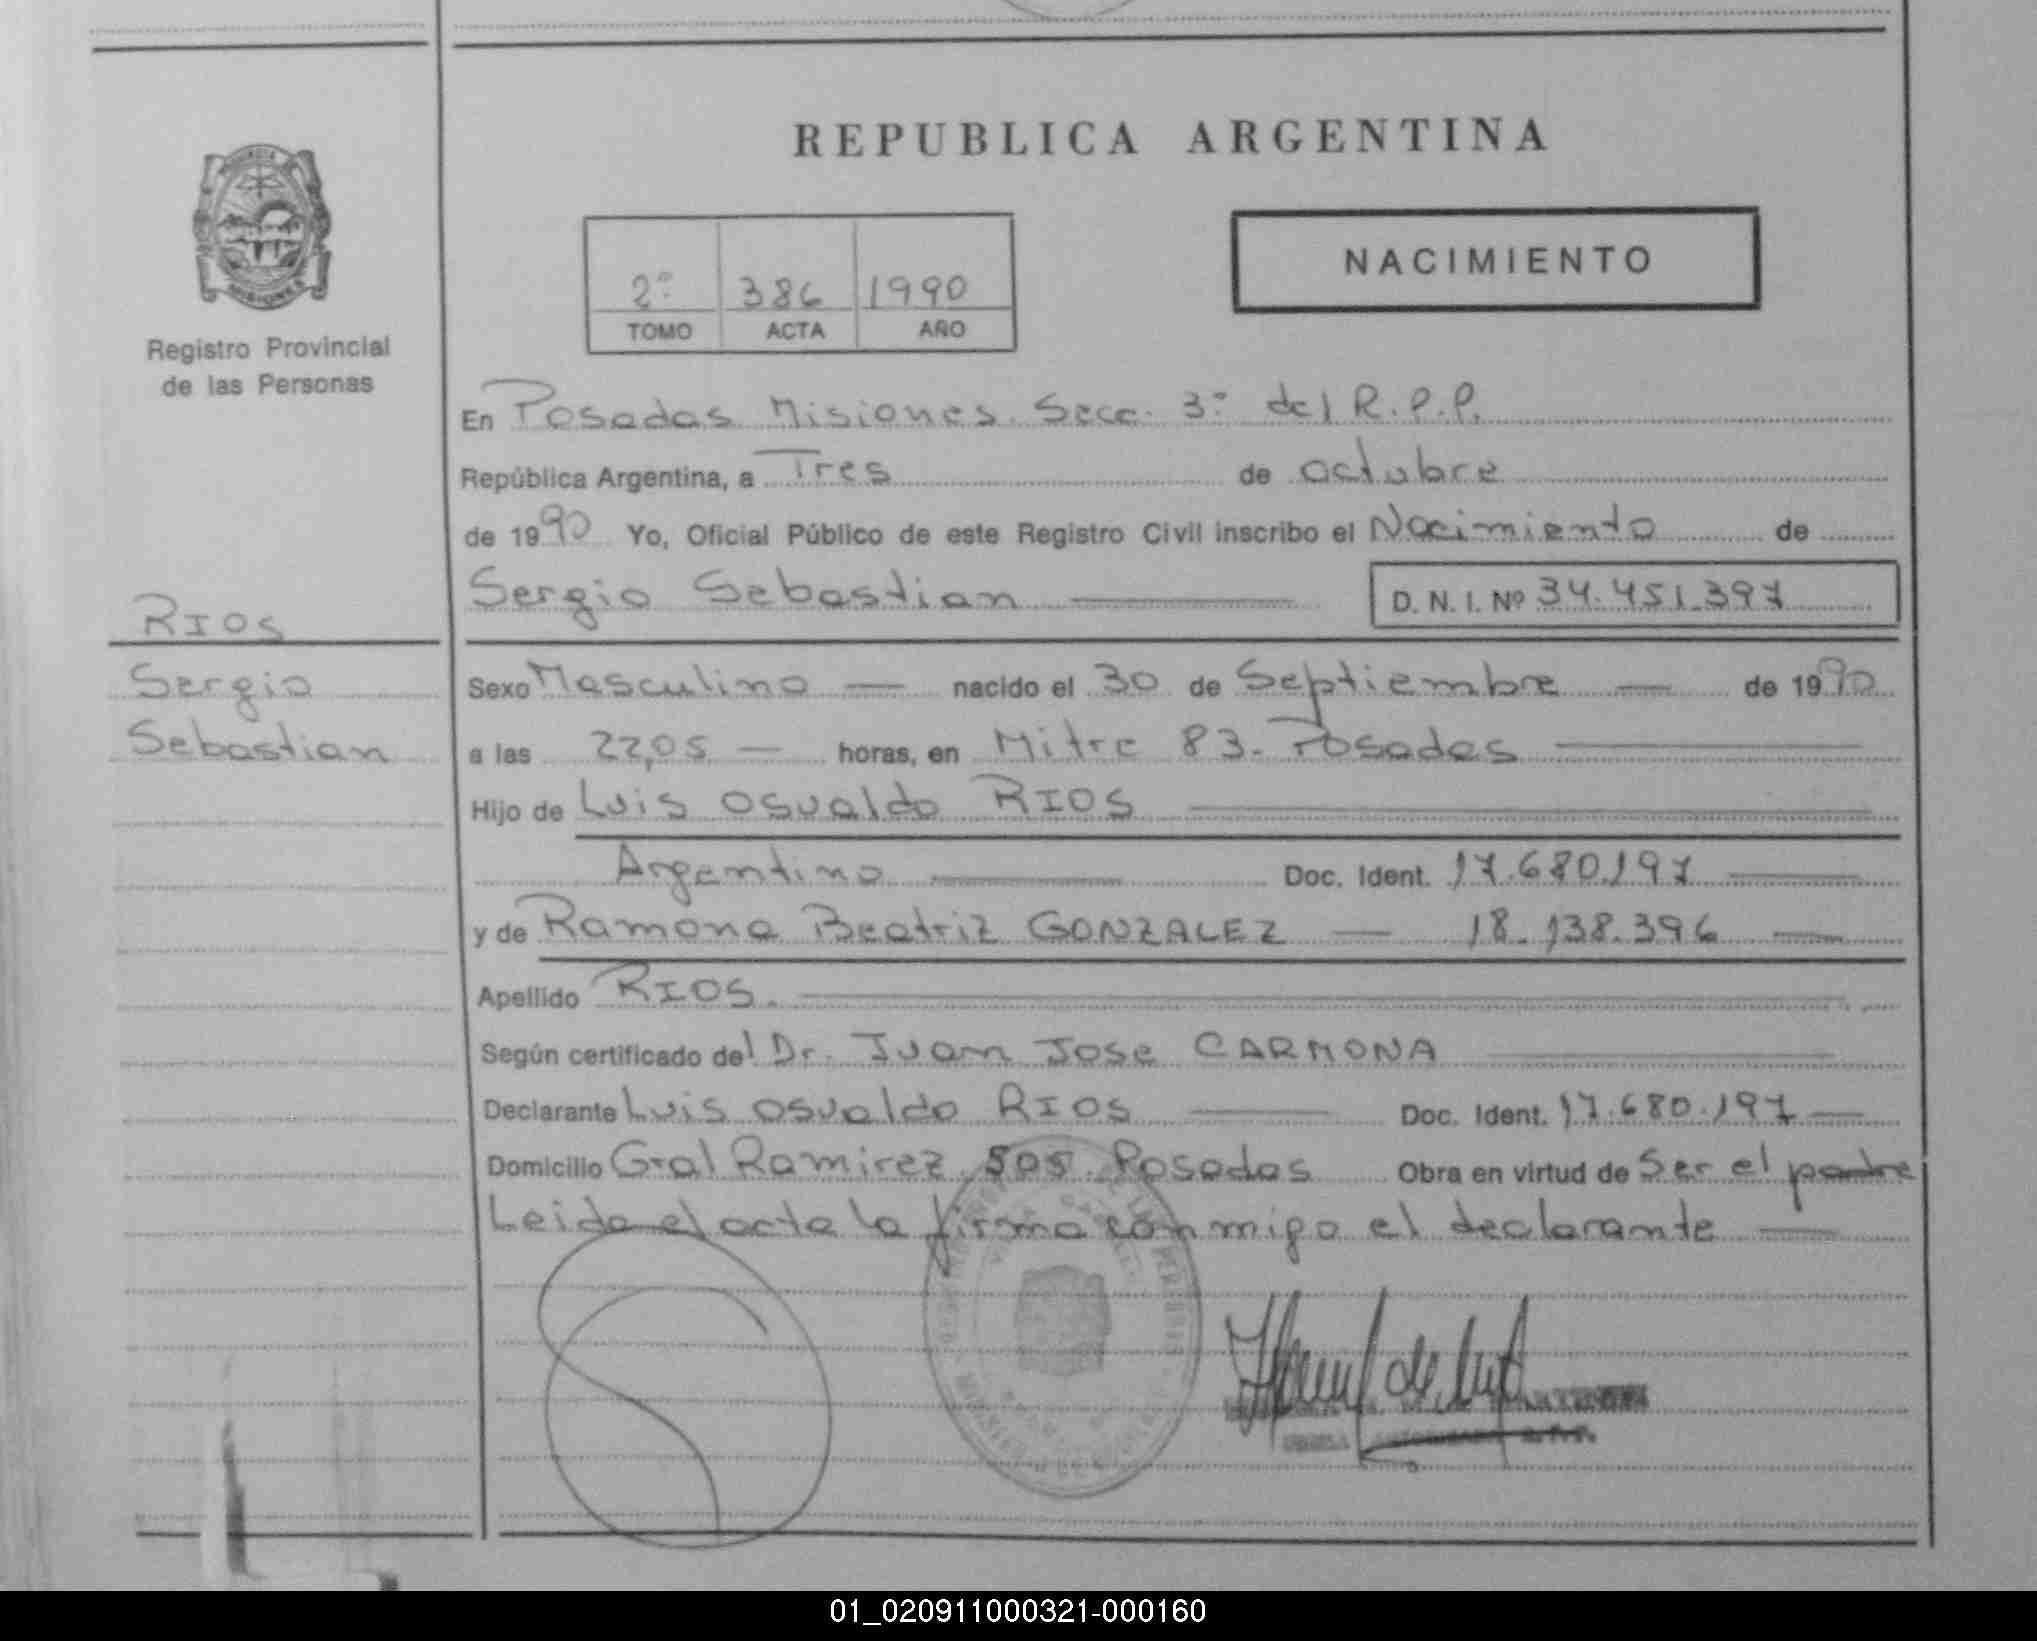 REPUBLICA ARGENTINA
NACIMIENTO
2º 386 1990
TOMO ACTA AÑO
Registro Provincial
de las Personas
En Posadas Misiones. Secc. 3º del R.P.P.
República Argentina, a Tres de octubre
de 1990 Yo, Oficial Público de este Registro Civil inscribo el Nacimiento de
Sergio Sebastian D.N.I. Nº 34.451.397
RIOS
Sergio
Sebastian
Sexo Masculino — nacido el 30 de Septiembre — de 1990
a las 22,05 — horas, en Mitre 83. Posadas
Hijo de Luis Osvaldo RIOS
Argentino Doc. Ident. 17.680.197
y de Ramona Beatriz GONZALEZ — 18.138.396
Apellido RIOS.
Según certificado del Dr. Juan Jose CARMONA
Declarante Luis Osvaldo RIOS Doc. Ident. 17.680.197
Domicilio Gral Ramirez 505 Posadas Obra en virtud de Ser el padre
Leida el acta la firma conmigo el declarante
01_020911000321-000160